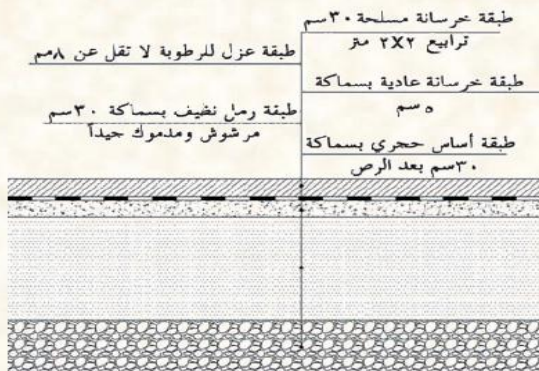 طبقة خرسانة مسلحة ٣٠سم
ترابيع ٢X٢ متر
طبقة عزل للرطوبة لا تقل عن ٨مم
طبقة خرسانة عادية بسماكة
٥ سم
طبقة رمل نظيف بسماكة ٣٠سم
مرشوش ومدموك جيداً
طبقة أساس حجري بسماكة
٣٠سم بعد الرص